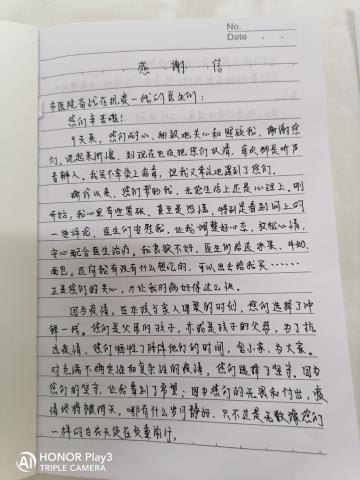 No.
Date
感 谢 信
市医院奋战在抗疫一线的医生们:
您们辛苦啦!
9天来,您们耐心、细致地关心和照顾我,谢谢您
们。说起来惭愧,到现在也没把您们认清,每次都是听声
音辨人。我虽不幸染上病毒,但我又幸运地遇到了您们。
确诊以来,您们帮助我,无论生活上还是心理上。刚
开始,我心里有些紧张、甚至是恐惧,特别是看到网上的
一些评论,医生们安慰我,让我调整好心态,放松心情,
安心配合医生治疗。我食欲不好,医生们给送水果、牛奶、
面包。还问我有没有什么想吃的,可以出去给我买……
正是您们的关心,才让我的病好得这么快。
因为疫情,在本该与家人团聚的时刻,您们选择了冲
锋一线。您们是父母的孩子,亦或是孩子的父母,为了抗
击疫情,您们牺牲了陪伴他们的时间,舍小家,为大家。
对充满不确定性和复杂性的疫情,您们选择了坚守。因为
您们的坚守,让我看到了希望;因为您们的无畏和付出,疫
情终将被消灭。哪有什么岁月静好,只不过是无数像您们
一样的白衣天使在负重前行。
HONOR Play3
TRIPLE CAMERA